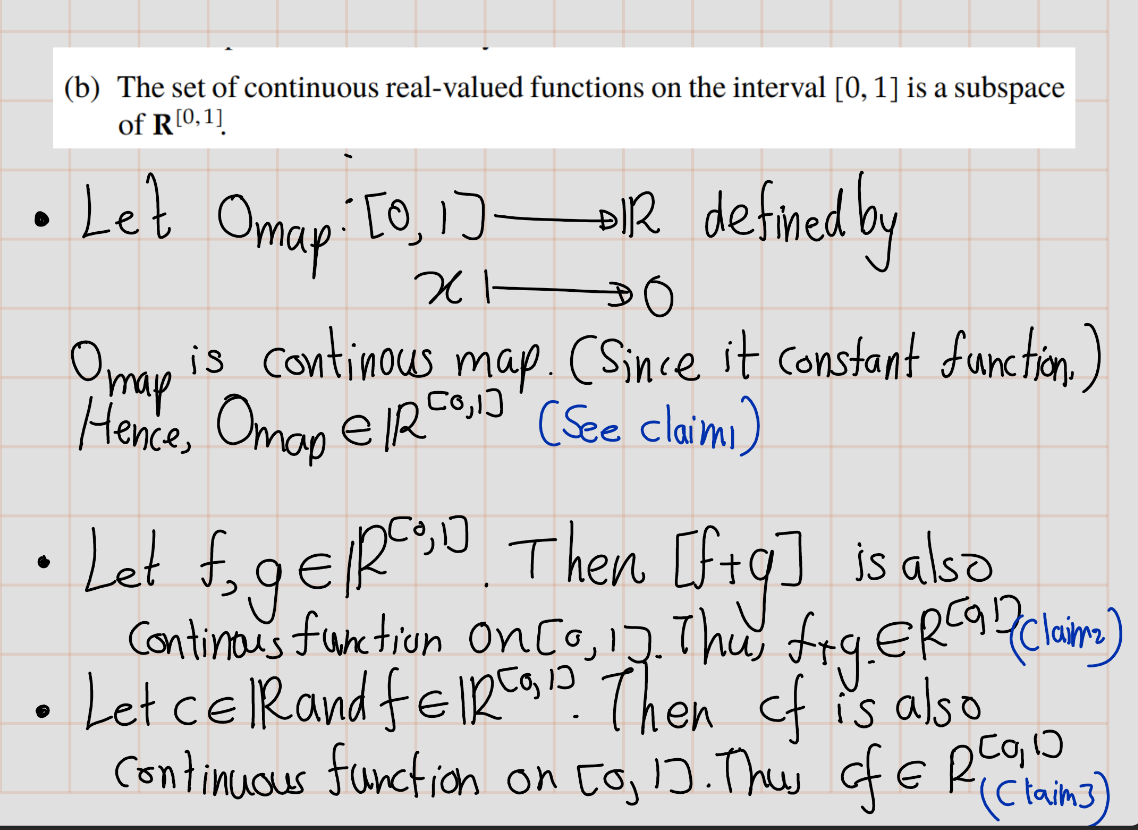 (b) The set of continuous real-valued functions on the interval [0, 1] is a subspace
of R^[0,1].
• Let 0map : [0, 1] → ℝ defined by
x ↦ 0
0map is continous map. (Since it constant function.)
Hence, 0map ∈ ℝ^[0,1] (See claim1)
• Let f, g ∈ ℝ^[0,1]. Then [f+g] is also
Continous function on [0, 1]. Thus f+g ∈ R^[0,1] (Claim2)
• Let c ∈ ℝ and f ∈ ℝ^[0,1]. Then cf is also
Continuous function on [0, 1]. Thus cf ∈ R^[0,1]
(Claim3)